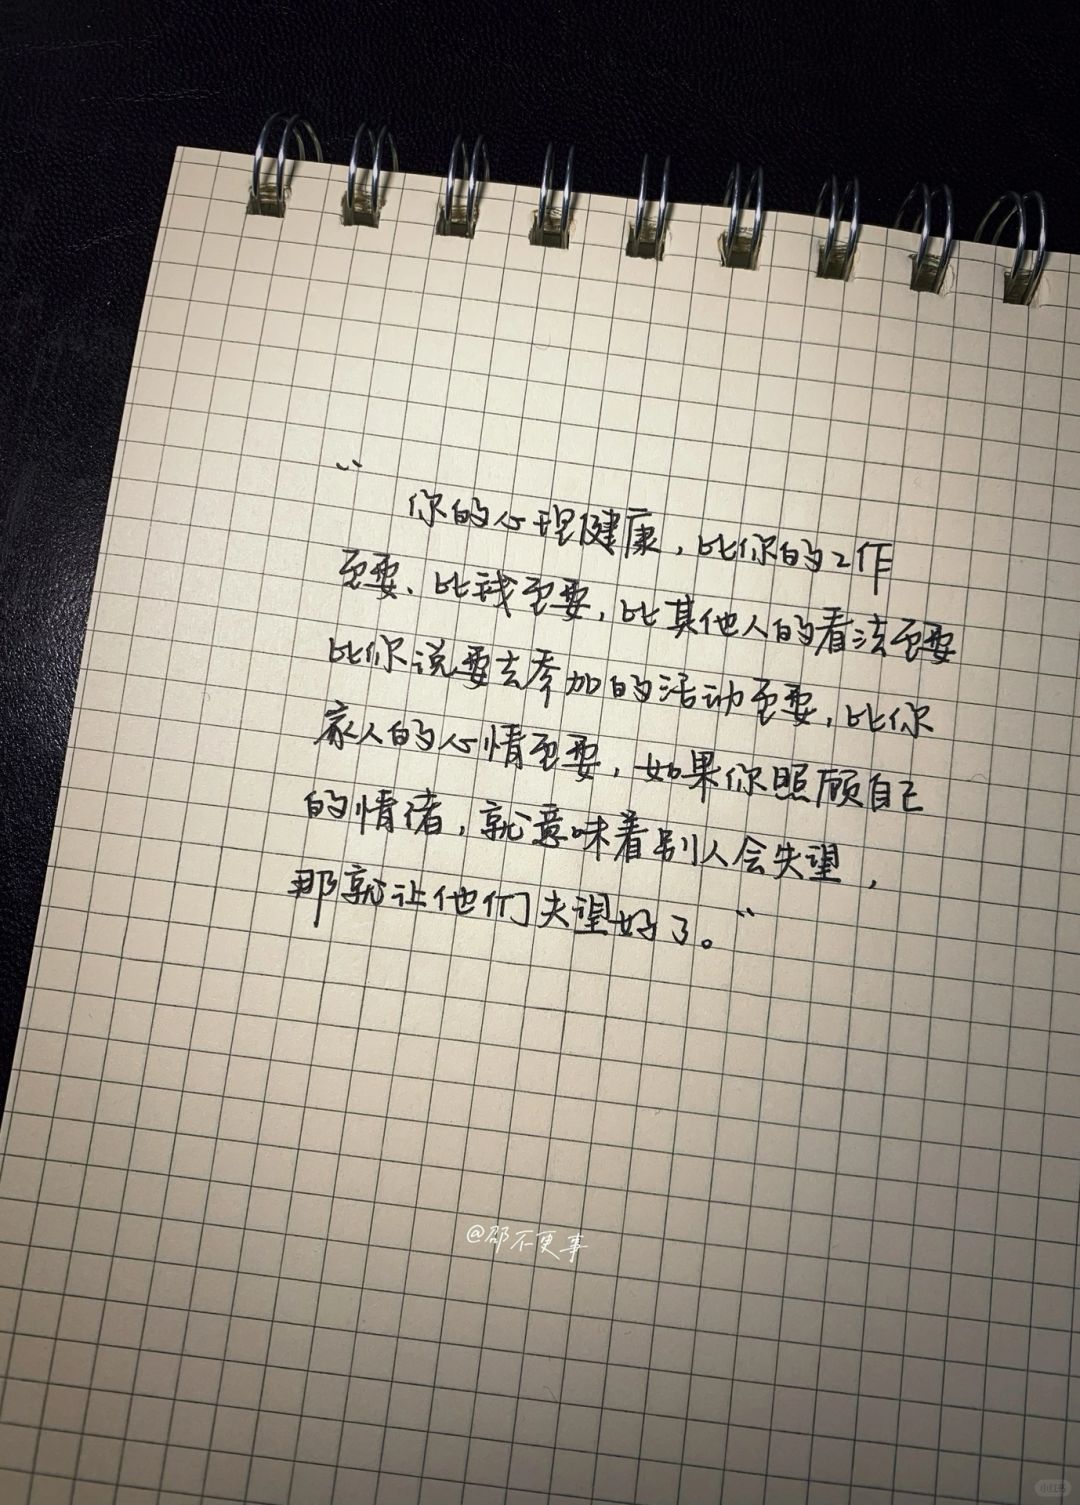 “
你的心理健康，比你的工作
重要、比钱重要，比其他人的看法重要
比你说要去参加的活动重要，比你
家人的心情重要，如果你照顾自己
的情绪，就意味着别人会失望，
那就让他们失望好了。”
@邵不更事
小红书